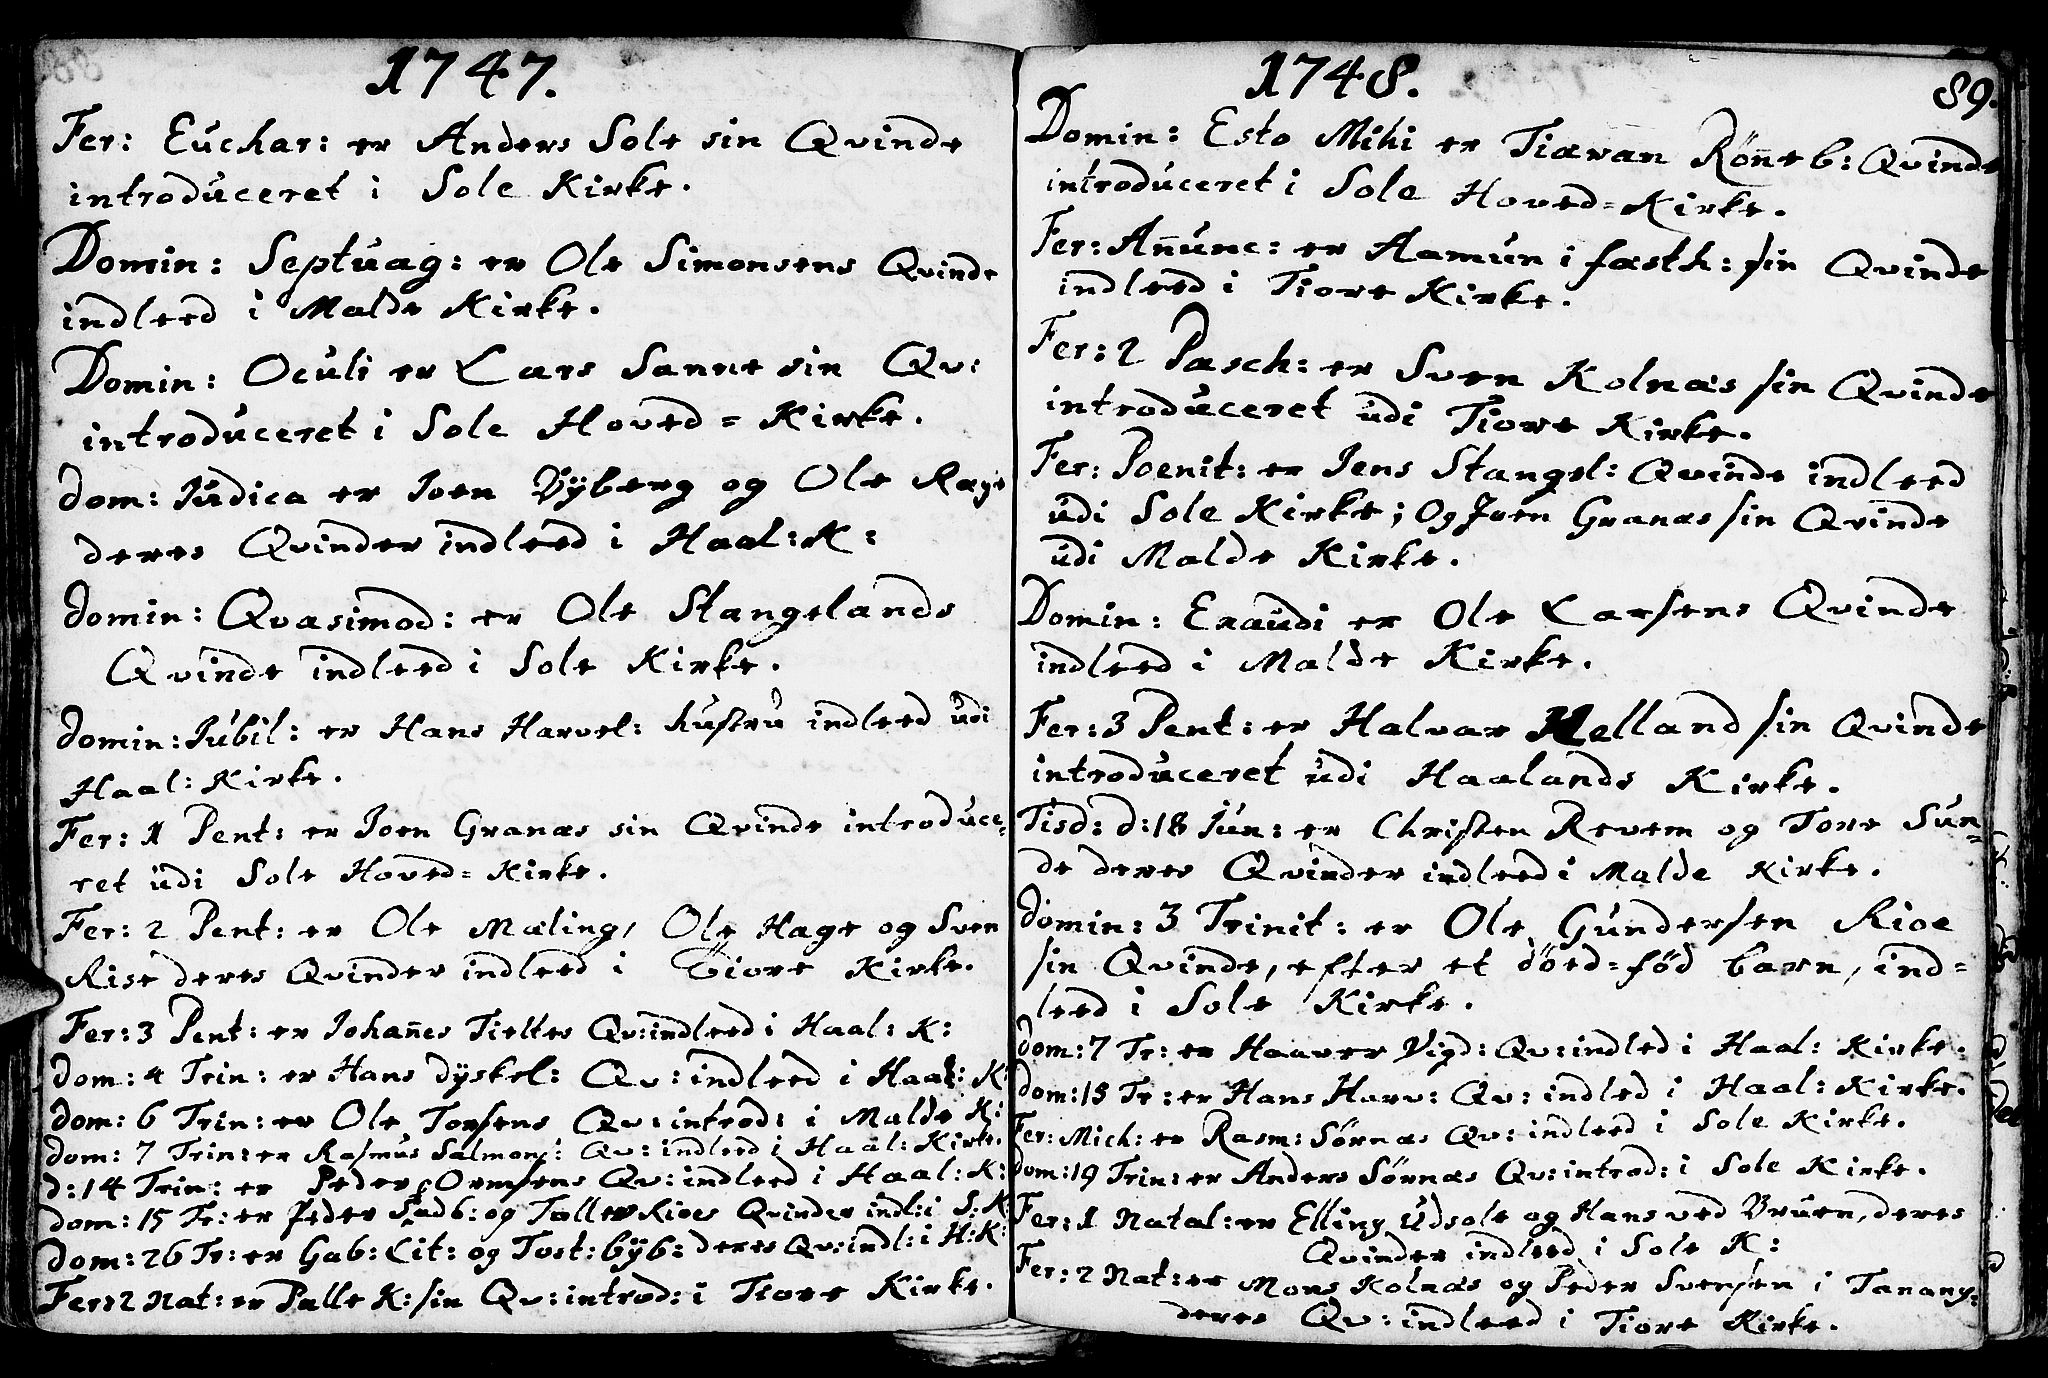 1747.
Fer: Euchar: er Anders Sole sin Qvinde
introduceret i Sole Kirke.
Domin: Septuag: er Ole Simonsens Qvinde
indleed i Malde Kirke.
Domin: Oculi er Lars Sanne sin Qv:
introduceret i Sole Hoved=Kirke.
Dom: Judica er Joen Vÿberg og Ole Rage
deres Qvinder indleed i Haal: K:
Domin: Qvasimod: er Ole Stangelands
Qvinde indleed i Sole Kirke.
Domin: Jubil: er Hans Harvel: hustru indleed udi
Haal: Kirke.
Fer: 1 Pent: er Joen Granæs sin Qvinde introduce=
ret udi Sole Hoved=Kirke.
Fer: 2 Pent: er Ole Mæling, Ole Hage og Sven
Rise deres Qvinder indleed i Tiore Kirke.
Fer: 3 Pent: er Johan̄es Tieltes Qv: indleed i Haal: K:
Dom: 4 Trin: er Hans Dÿskel: Qv: indleed i Haal: K:
Dom: 6 Trin: er Ole Torsens Qv: introd: i Malde K:
Dom: 7 Trin: er Rasmus Salmons: Qv: indleed i Haal: Kirke.
D: 14 Trin: er Peder Ormsens Qv: indleed i Haal: K:
Dom: 15 Tr: er Peder Sudb: og Taller Rioes Qvinder indl: i S: K
Dom: 26 Tr: er Gab: Lit: og Tost: bÿb: deres Qv: indl: i H: K:
Fer: 2 Nat: er Palle K: sin Qv: introd: i Tiore Kirke.
1748.
89.
Domin: Esto Mihi er Tiæran Rön̄eb: Qvinde
introduceret i Sole Hoved=Kirke.
Fer: An̄unc: er Aamun i fæsth: sin Qvinde
indleed i Tiore Kirke.
Fer: 2 Pasch: er Sven Kolnæs sin Qvinde
introduceret udi Tiore Kirke.
Fer: Poenit: er Jens Stangel: Qvinde indleed
udi Sole Kirke; Og Joen Granæs sin Qvinde
udi Malde Kirke.
Domin: Exaudi er Ole Larsens Qvinde
indleed i Malde Kirke.
Fer: 3 Pent: er Halvar Helland sin Qvinde
introduceret udi Haalands Kirke.
Tisd: d: 18 Jun: er Christen Revem og Tore Sun=
de deres Qvinder indleed i Malde Kirke.
Domin: 3 Trinit: er Ole Gundersen Rioe
sin Qvinde, efter et döed=fød barn, ind=
leed i Sole Kirke.
Dom: 7 Tr: er Haaver Vigd: Qv: indled i Haal: Kirke.
Dom: 15 Tr: er Hans Harv: Qv: indled i Haal: Kirke.
Fer: Mich: er Rasm: Sörnæs Qv: indleed i Sole Kirke.
Dom: 19 Trin: er Anders Sörnæs Qv: introd: i Sole Kirke.
Fer: 1 Natal: er Elling Udsole og Hans ved Bruen, deres
Qvinder indleed i Sole K:
Fer: 2 Nat: er Mons Kolnæs og Peder Svensen i Tanang:
deres Qv: indleed i Tiore Kirke.